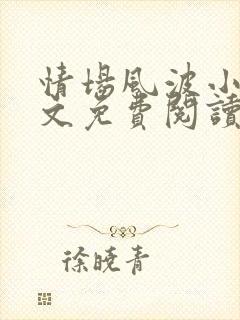 情場風波小
文免費閱讀
徐曉青